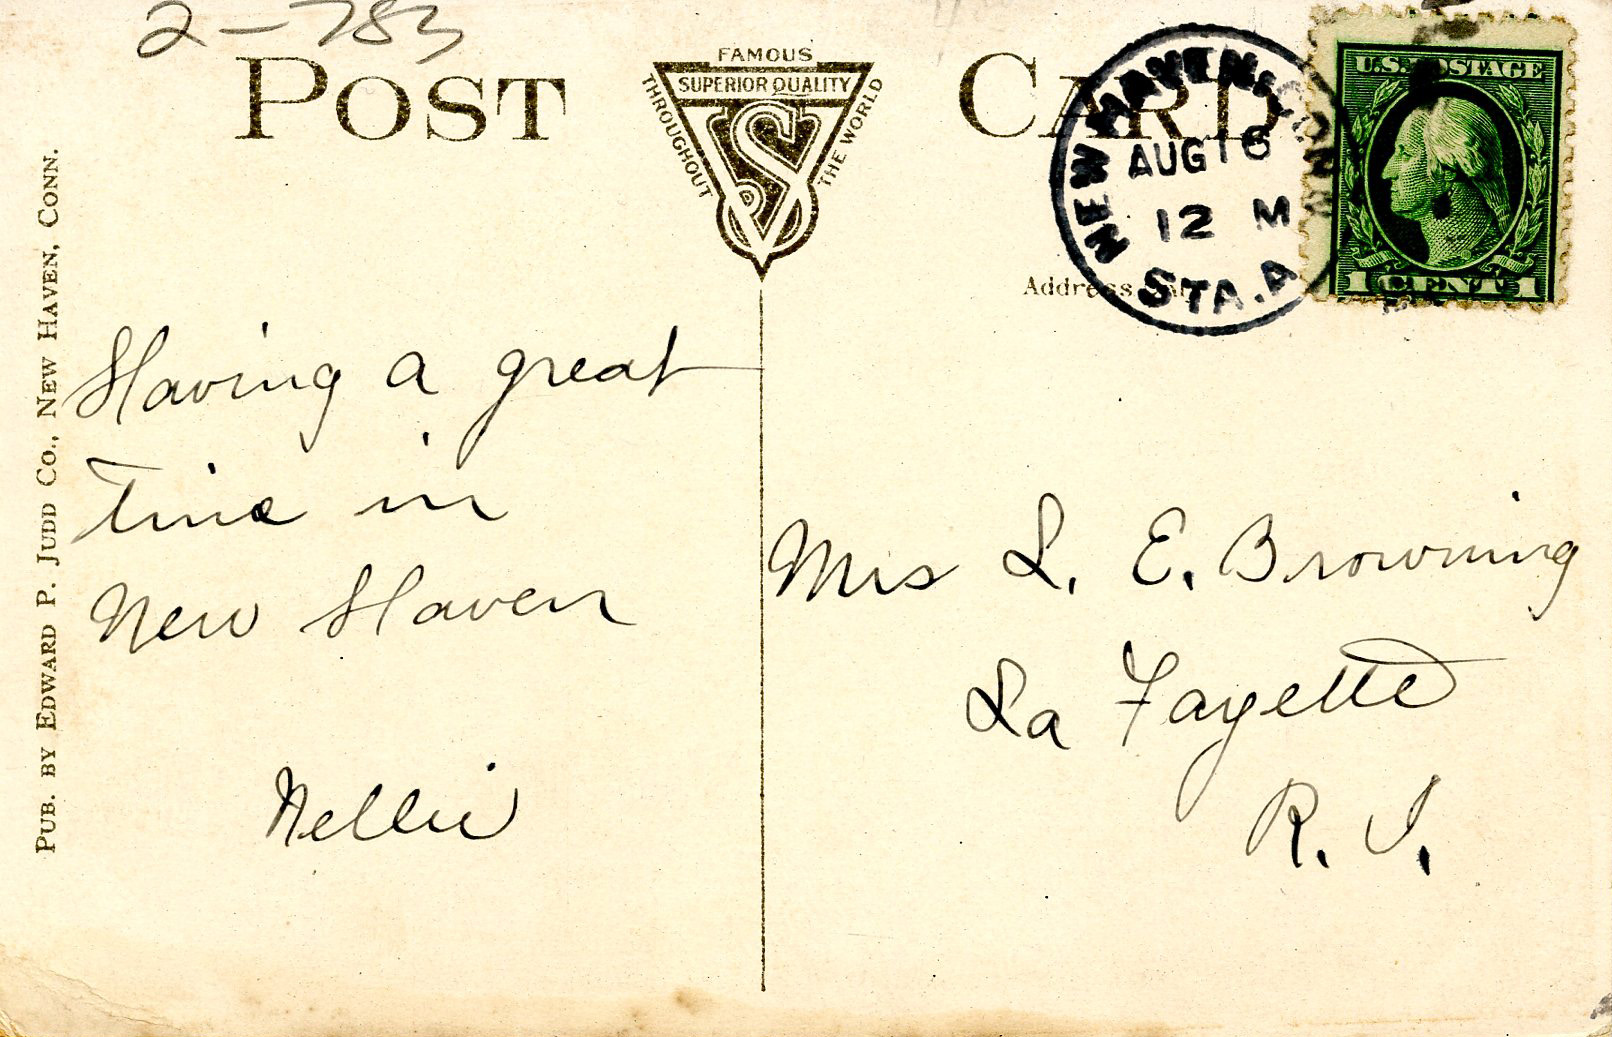 2-783
POST CARD
FAMOUS
SUPERIOR QUALITY
THROUGHOUT THE WORLD
SV
NEW HAVEN, CONN.
AUG 16
12 M
STA. A
U.S. POSTAGE
1 CENT 1
Address
PUB. BY EDWARD P. JUDD CO., NEW HAVEN, CONN.
Having a great
time in
New Haven
Nellie
Mrs L. E. Browning
La Fayette
R. I.